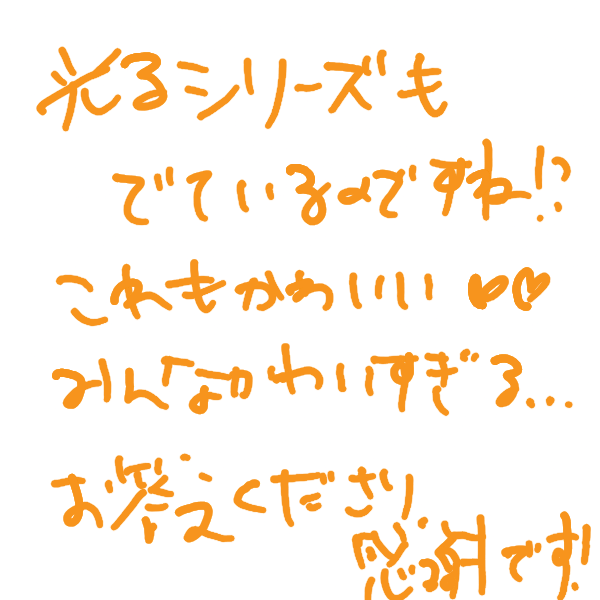 光るシリーズも
でているのですね!?
これもかわいい♥♡
みんなかわいすぎる...
お答えくださり
感謝です!